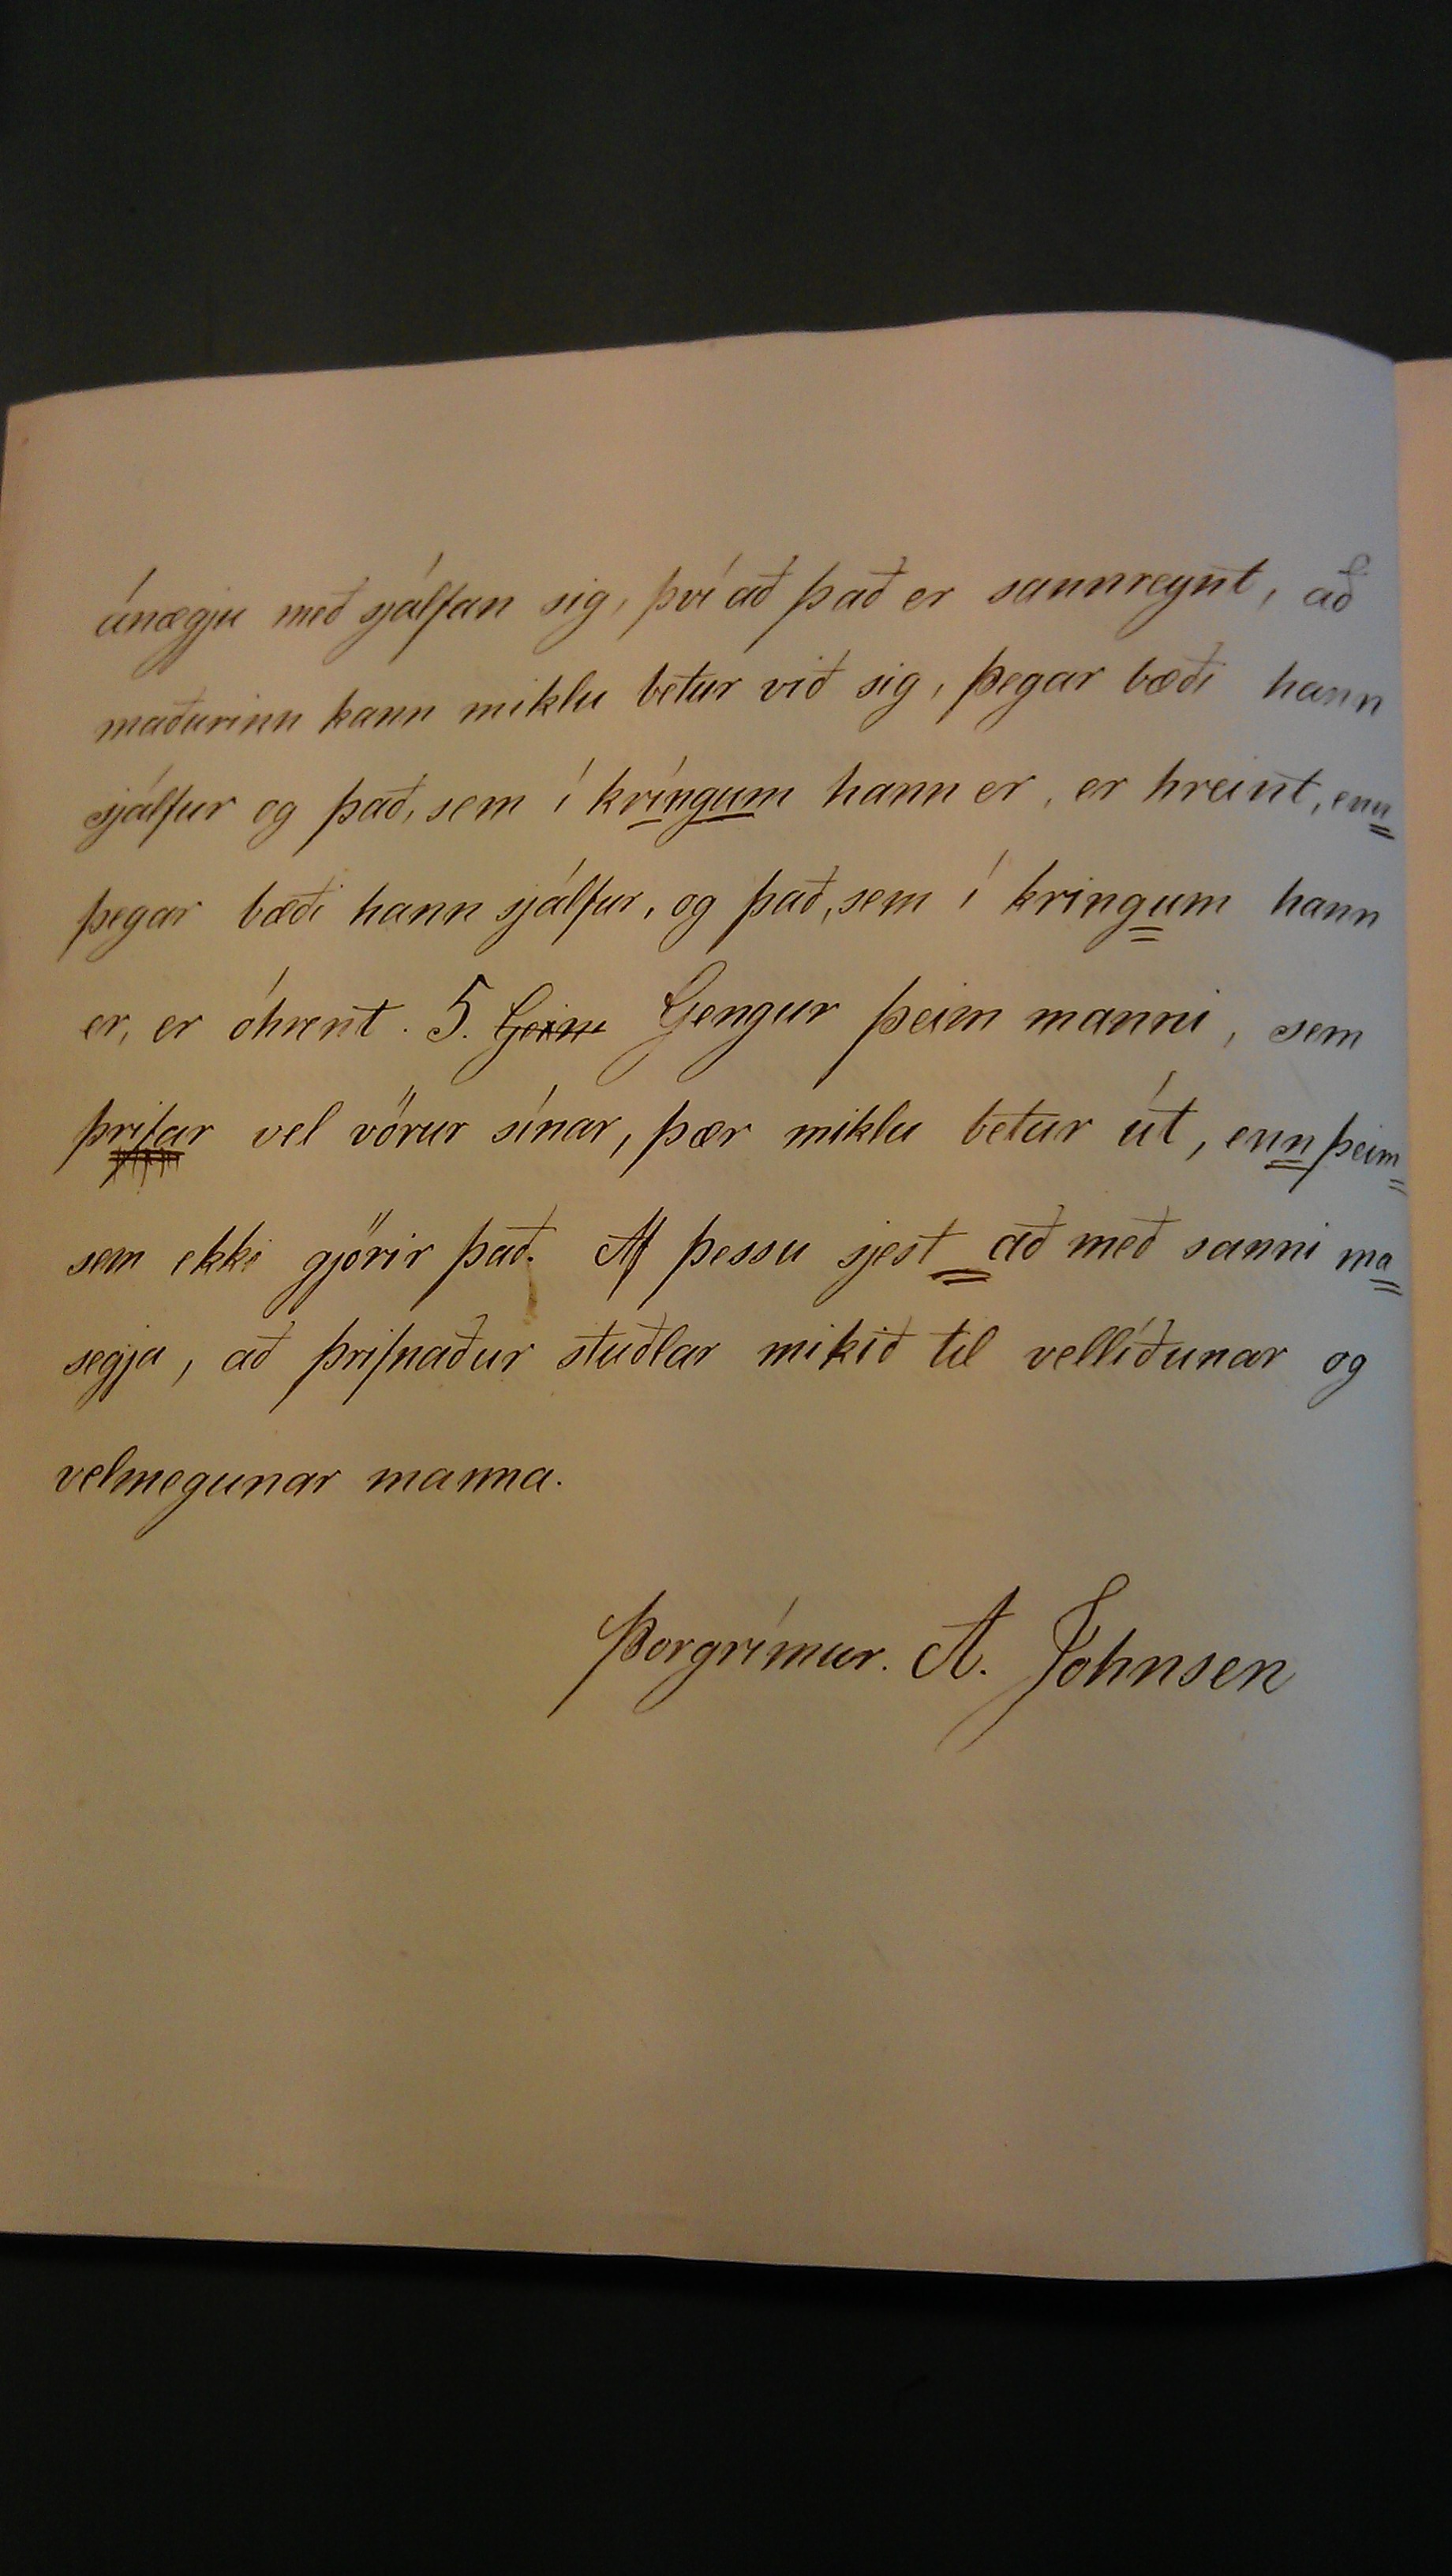 ánægju með sjálfan sig, því að það er sannreynt, að
maðurinn kann miklu betur við sig, þegar bæði hann
sjálfur og það, sem í kríngum hann er, er hreint, enn
þegar bæði hann sjálfur, og það, sem í kringum hann
er, er óhreint. 5. Gengur þeim manni, sem
þrifar vel vörur sínar, þær miklu betur út, enn þeim
sem ekki gjörir það. Af þessu sjest að með sanni ma
segja, að þrifnaður stuðlar mikið til vellíðunar og
velmegunar manna.
Þorgrímur. A. Johnsen